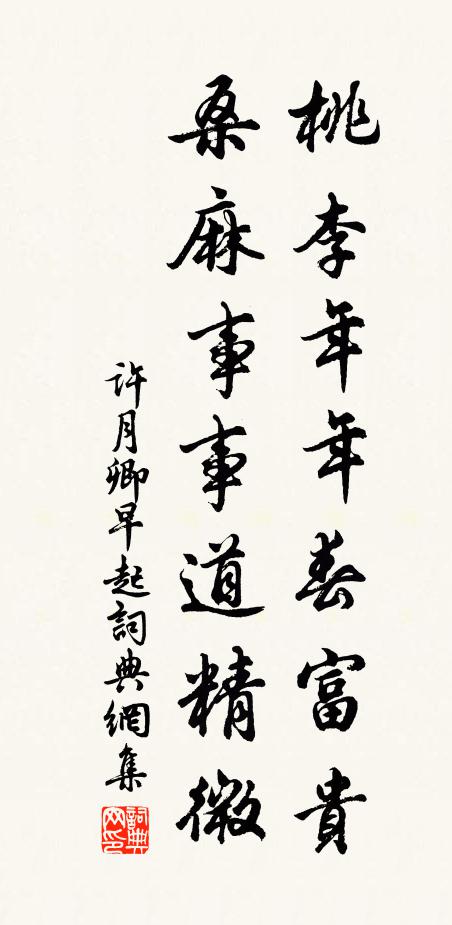 桃李年年春富貴
桑麻事事道精微
許月卿早起詞典網集
詞典网印